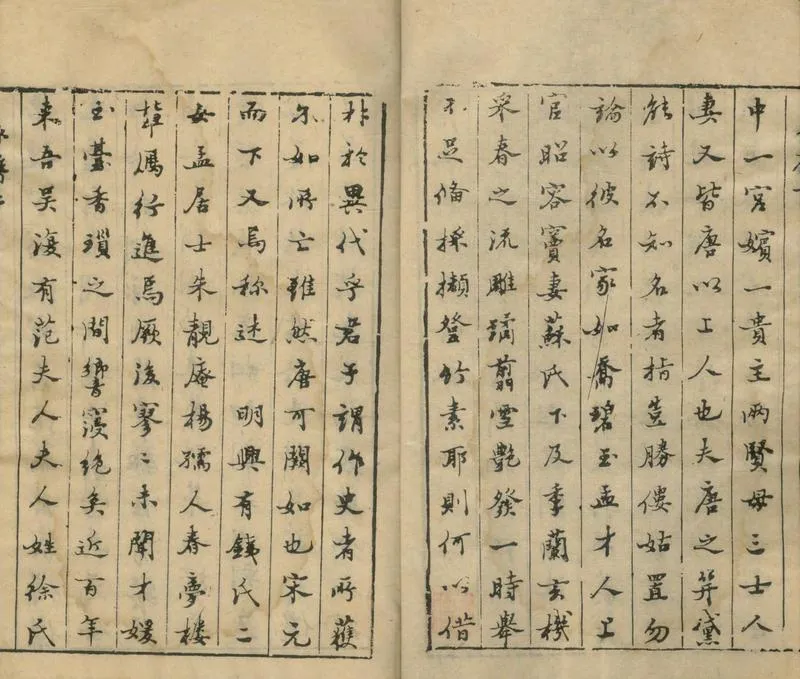 中一宮嬪一貴主兩賢母三士人
妻又皆唐以上人也夫唐之筓黛
能詩不知名者指豈勝僂姑置勿
論以彼名家如喬碧玉孟才人上
官昭容竇妻蘇氏下及季蘭玄機
采春之流雕璚翦雪艷發一時舉
不足俻採擷登竹素耶則何以借
材於異代乎君子謂作史者所獲
尓如所亡雖然庸可闕如也宋元
而下又烏称述明興有錢氏二
女孟居士朱靚庵楊孺人春夢樓
鴈行進焉厥後寥〻未聞才媛
玉臺香瑣之間響寖絶矣近百年
來吾吳復有范夫人夫人姓徐氏